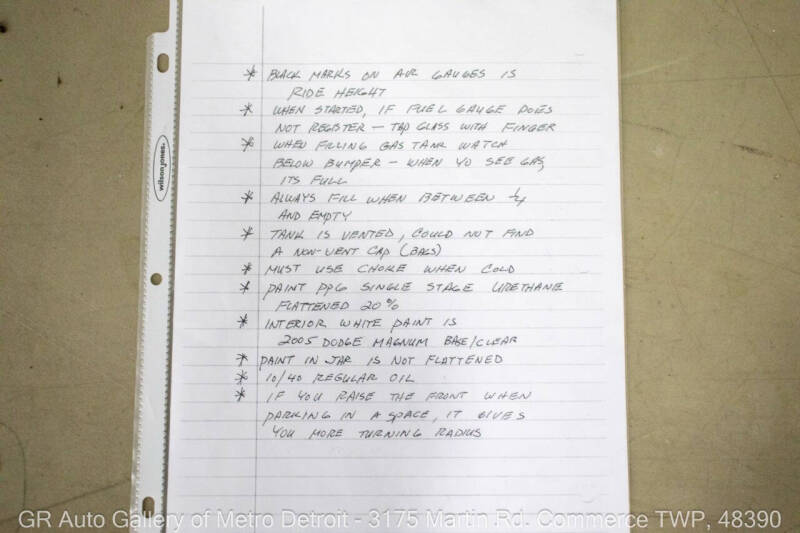 * BLACK MARKS ON AIR GAUGES IS
RIDE HEIGHT
* WHEN STARTED, IF FUEL GAUGE DOES
NOT REGISTER - TAP GLASS WITH FINGER
* WHEN FILLING GAS TANK WATCH
BELOW BUMPER - WHEN YO SEE GAS,
ITS FULL
* ALWAYS FILL WHEN BETWEEN 1/4
AND EMPTY
* TANK IS VENTED, COULD NOT FIND
A NON-VENT CAP (BALS)
* MUST USE CHOKE WHEN COLD
* PAINT PPG SINGLE STAGE URETHANE
FLATTENED 20%
* INTERIOR WHITE PAINT IS
2005 DODGE MAGNUM BASE/CLEAR
* PAINT IN JAR IS NOT FLATTENED
* 10/40 REGULAR OIL
* IF YOU RAISE THE FRONT WHEN
PARKING IN A SPACE, IT GIVES
YOU MORE TURNING RADIUS
wilson jones.
GR Auto Gallery of Metro Detroit - 3175 Martin Rd. Commerce TWP, 48390